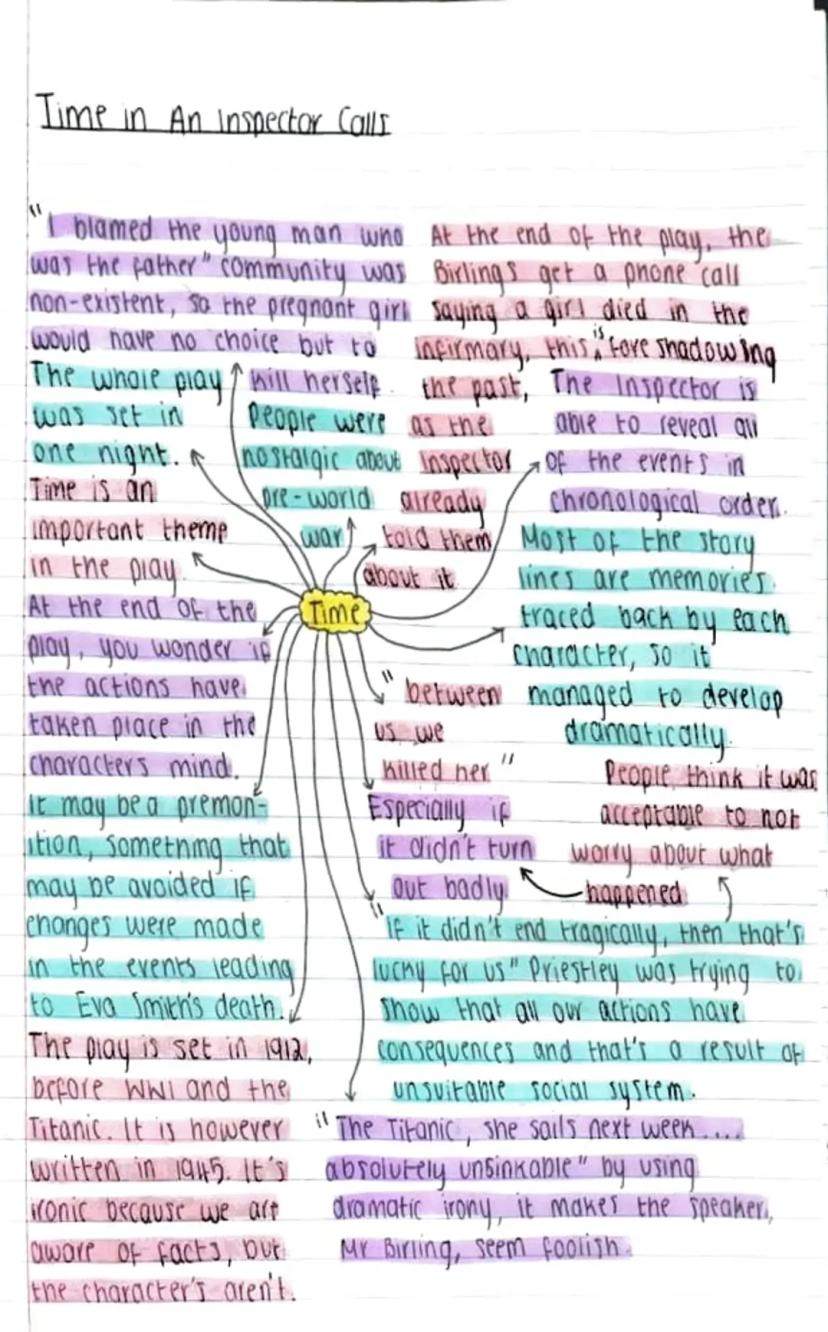 Time in An Inspector Calls
"I blamed the young man who
was the father" community was
non-existent, so the pregnant girl
would have no choice but to
kill herself.
The whole play
was set in
one night.
People were
nostalgic about
pre-world
war
Time is an
important theme
in the play.
At the end of the play, the
Birlings get a phone call
saying a girl died in the
infirmary, this is foreshadowing
the past,
as the
Inspector
already
told them
about it.
The Inspector is
able to reveal all
of the events in
chronological order.
Most of the story
lines are memories
traced back by each
character, so it
managed to develop
dramatically.
Time
At the end of the
play, you wonder if
the actions have
taken place in the
characters mind.
It may be a premon-
ition, something that
may be avoided if
changes were made
in the events leading
to Eva Smith's death.
The play is set in 1912,
before WW1 and the
Titanic. It is however
written in 1945. It's
ironic because we are
aware of facts, but
the character's aren't.
"between
us we
killed her"
Especially if
it didn't turn
out badly
People think it was
acceptable to not
worry about what
happened
"If it didn't end tragically, then that's
lucky for us" Priestley was trying to
show that all our actions have
consequences and that's a result of
unsuitable social system.
"The Titanic, she sails next week....
absolutely unsinkable" by using
dramatic irony, it makes the speaker,
Mr Birling, seem foolish.